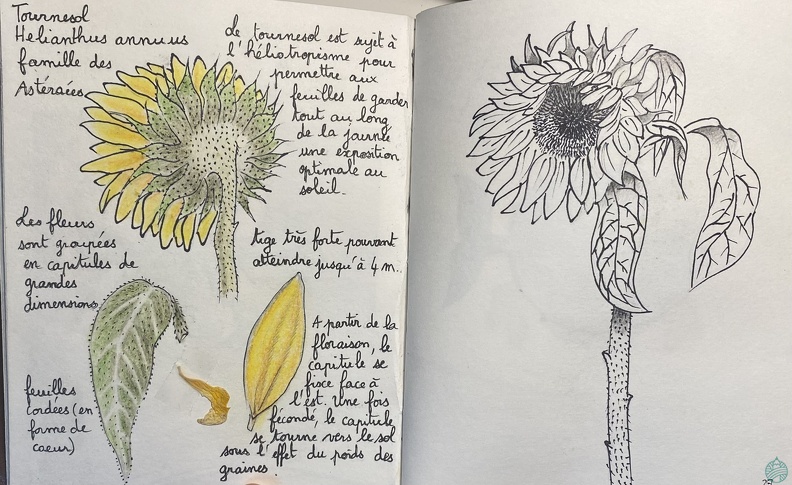 Tournesol
Helianthus annuus
famille des
Astéracées
Le tournesol est sujet à
l'héliotropisme pour
permettre aux
feuilles de garder
tout au long
de la journée
une exposition
optimale au
soleil.
Les fleurs
sont groupées
en capitules de
grandes
dimensions
tige très forte pouvant
atteindre jusqu'à 4 m.
A partir de la
floraison, le
capitule se
fixe face à
l'est. Une fois
fécondé, le capitule
se tourne vers le sol
sous l'effet du poids des
graines.
feuilles
cordées (en
forme de
cœur)